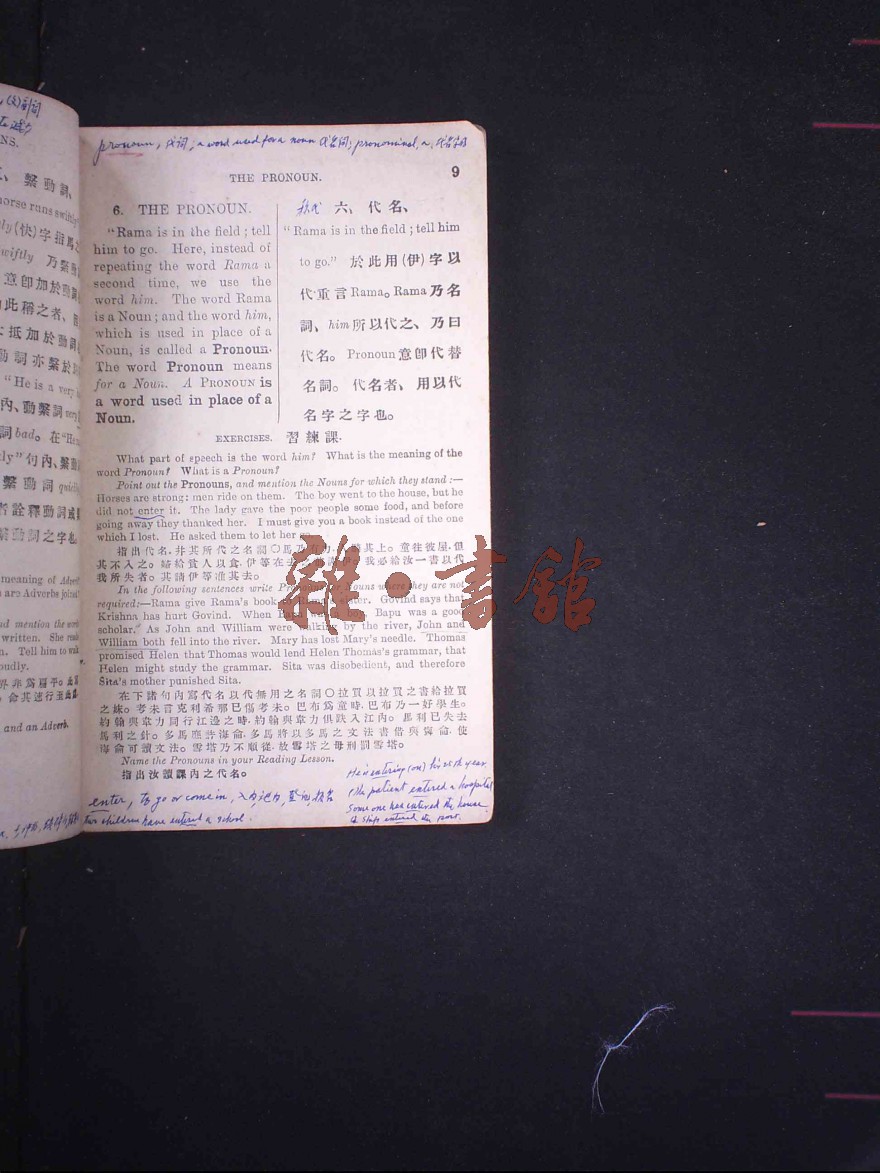 pronoun, 代詞; a word used for a noun 代名詞; pronominal, a,
THE PRONOUN. 9
6. THE PRONOUN.
"Rama is in the field; tell
him to go. Here, instead of
repeating the word Rama a
second time, we use the
word him. The word Rama
is a Noun; and the word him,
which is used in place of a
Noun, is called a Pronoun.
The word Pronoun means
for a Noun. A PRONOUN is
a word used in place of a
Noun.
六、代名、
"Rama is in the field; tell him
to go." 於此用(伊)字以
代重言Rama。Rama乃名
詞、him所以代之、乃曰
代名。Pronoun意卽代替
名詞。代名者、用以代
名字之字也。
EXERCISES. 習練課.
What part of speech is the word him? What is the meaning of the
word Pronoun? What is a Pronoun?
Point out the Pronouns, and mention the Nouns for which they stand:—
Horses are strong: men ride on them. The boy went to the house, but he
did not enter it. The lady gave the poor people some food, and before
going away they thanked her. I must give you a book instead of the one
which I lost. He asked them to let her go.
指出代名、幷其所代之名詞〇馬乃有力、其上。童往彼屋、但
其不入之。婦給貧人以食、伊等在去我必給汝一書以代
我所失者。其請伊等准其去。
In the following sentences write Pronouns for Nouns where they are not
required:—Rama give Rama's book to Rama's sister. Govind says that
Krishna has hurt Govind. When Bapu was a boy, Bapu was a good
scholar. As John and William were walking by the river, John and
William both fell into the river. Mary has lost Mary's needle. Thomas
promised Helen that Thomas would lend Helen Thomas's grammar, that
Helen might study the grammar. Sita was disobedient, and therefore
Sita's mother punished Sita.
在下諸句內寫代名以代無用之名詞〇拉買以拉買之書給拉買
之妹。考未言克利希那已傷考未。巴布爲童時、巴布乃一好學生。
約翰與韋力同行江邊之時、約翰與韋力俱跌入江內。馬利已失去
馬利之針。多馬應許海侖、多馬將以多馬之文法書借與海侖、使
海侖可讀文法。雪塔乃不順從、故雪塔之母刑罰雪塔。
Name the Pronouns in your Reading Lesson.
指出汝讀課內之代名。
He is entering (on) his 25th year.
The patient entered a hospital
Some one has entered the house
A ship entered the port.
enter, to go or come in,
Two children have entered a school.
NS.
、繫動詞、
horse runs swiftly
(快)字指馬之
乃繫動
意卽加於動詞
此稱之者、
抵加於動詞
動詞亦繫於
"He is a very
內、動繫詞
詞bad。在"He
ly"句內、繫動
繫動詞
者詮釋動詞或
動詞之字也
meaning of
are Adverbs joined
and mention the words
written. She reads
n. Tell him to walk
oudly.
and an Adverb.
雜·書館